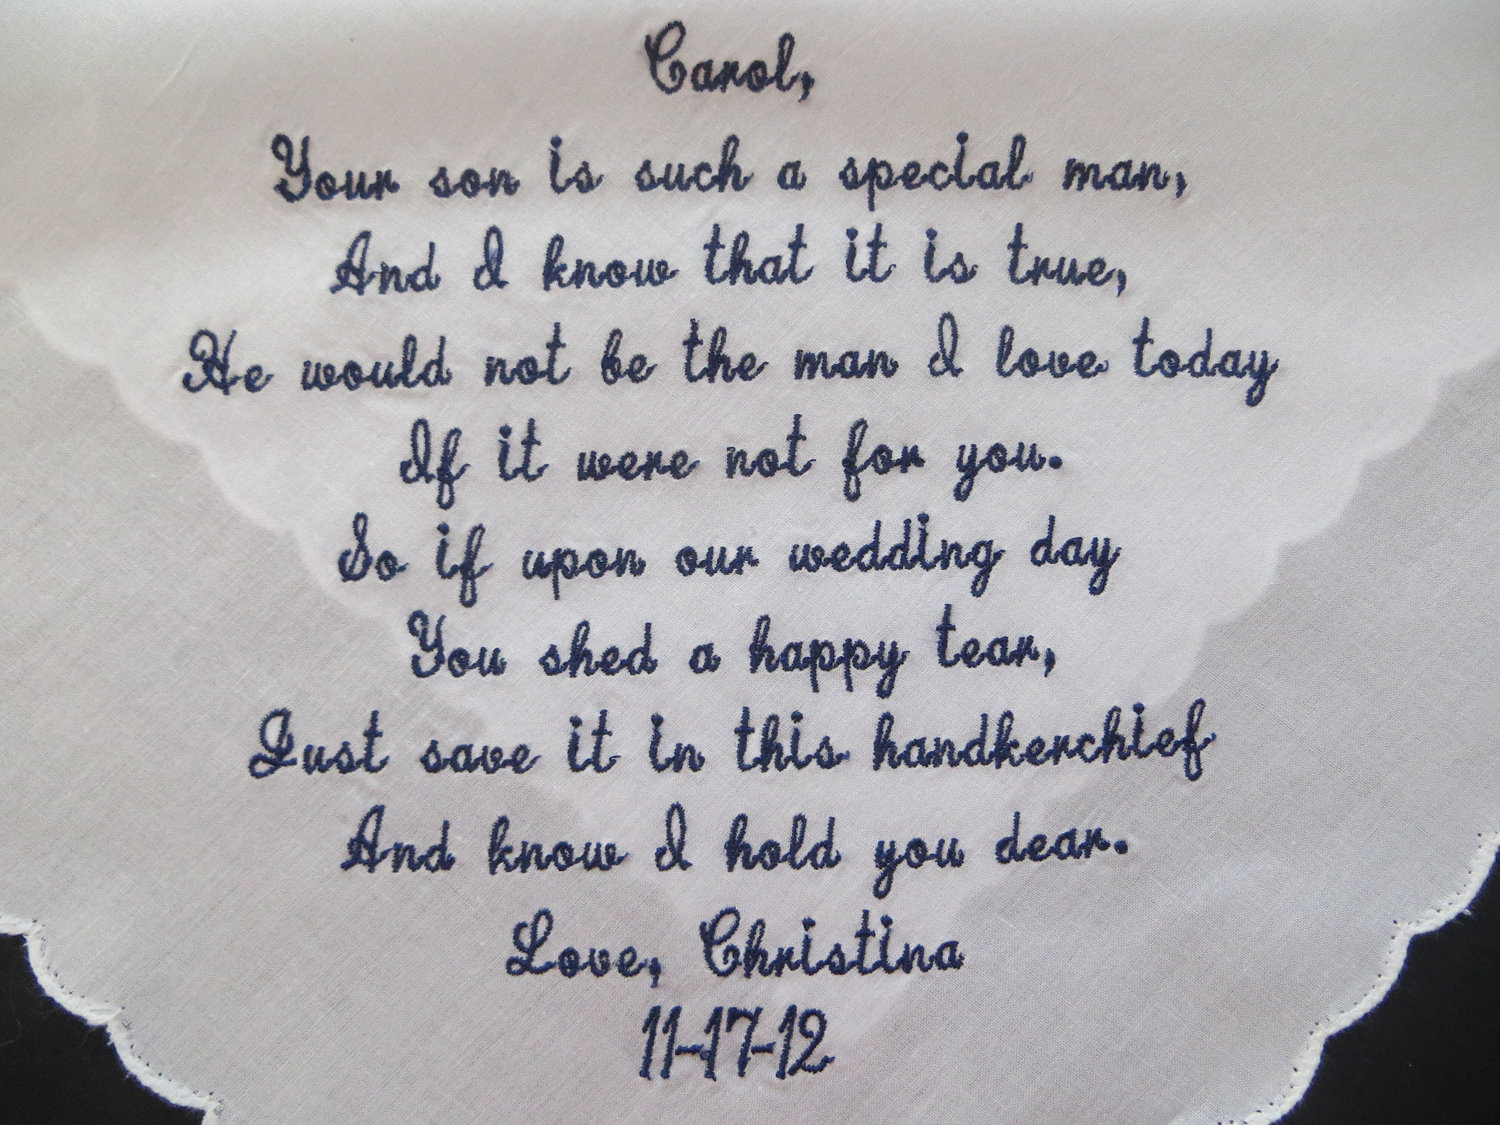 Carol,
Your son is such a special man,
And I know that it is true,
He would not be the man I love today
If it were not for you.
So if upon our wedding day
You shed a happy tear,
Just save it in this handkerchief
And know I hold you dear.
Love, Christina
11-17-12